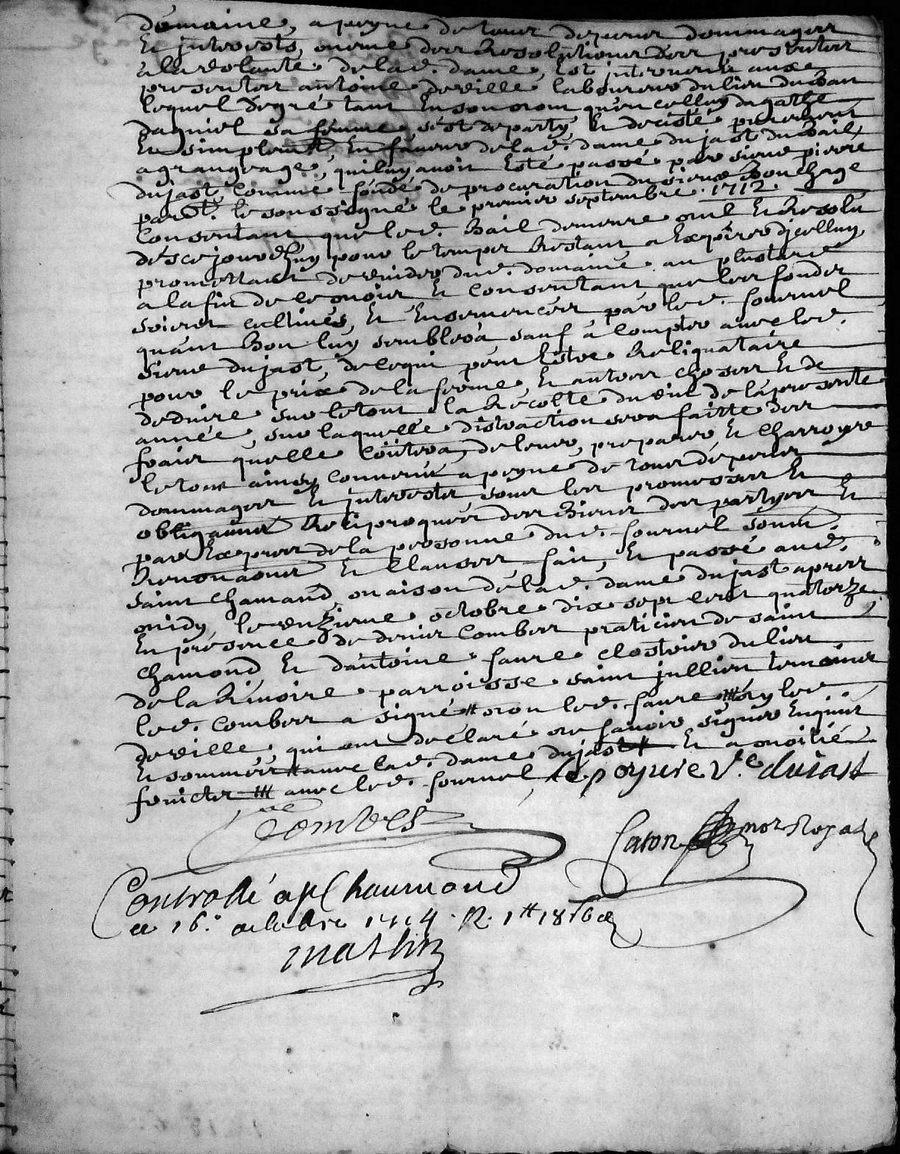 domaine, a peyne de tous depens dommages
Et interests, mesme des Resolutions des presentes
a la volonté de lad. dame, Est intervenu aux
presentes antoine deville laboureur du lieu du
lequel de gré tant En son nom qu'en celluy dagathe
sa femme, s'est departy, Et desisté purement
Et simplement En faveur de lad. dame dujast du bail
a grangeage, qui luy avoit Esté passé par sieur pierre
dujast comme fondé de procuration du sieur Bouchage
par le soussigné le premier septembre 1712.
Consentant que led. Bail demeure nul Et Resolu
des ce jourdhuy pour le temps Restant a Expirer dicelluy
promettant de vuider dud. domaine au plustard
a la fin de ce mois Et consentant que les fonds
soient cultivés, Et Ensemencés par led. fournel
quant Bon luy semblera sauf a compter avec led.
sieur dujast, de ce qui peut Estre Reliquataire
pour le prix de la ferme, Et autres choses Et de
deduire sur le tout la Recolte du de la presente
année, sur laquelle distraction sera faitte des
frais quelle coutera, de lever, preparer, Et charroyer
le tout ainsy convenu a peyne de tous depens
dommages Et interests sous les promesses Et
obligations Reciproques des Biens des partyes Et
par Expres de la personne dud. fournel
Renonations Et clauses fait, Et passé aud.
saint chamand maison de lad. dame dujast apres
midy, le onzieme octobre dix sept cent quatorze
En presence de denis combes praticien de saint
chamond Et dantoine faure clostrier du lieu
de la Rivoire parroisse saint jullien temoins
led. combes a signé non led. faure ny led.
deville qui ont declaré ne savoir signer Enquis
Et sommés avec lad. dame dujast Et a moitié
avec led. fournel Lapoyvre Ve. dujast
Combes
Caron nore Royal
Controllé a St Chaumond
ce 16e. octobre 1714. R. 1tt 18s 6d
mathin